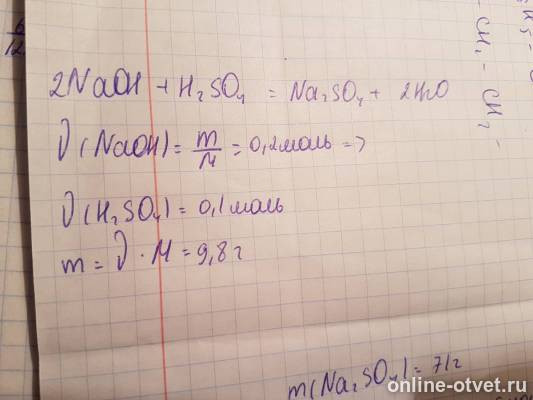 2NaOH + H₂SO₄ = Na₂SO₄ + 2H₂O
ν(NaOH) = m/M = 0,2 моль =>
ν(H₂SO₄) = 0,1 моль
m = ν · M = 9,8 г
m(Na₂SO₄) = 71г
- CH₂ - CH₂ -
6/12
online-otvet.ru